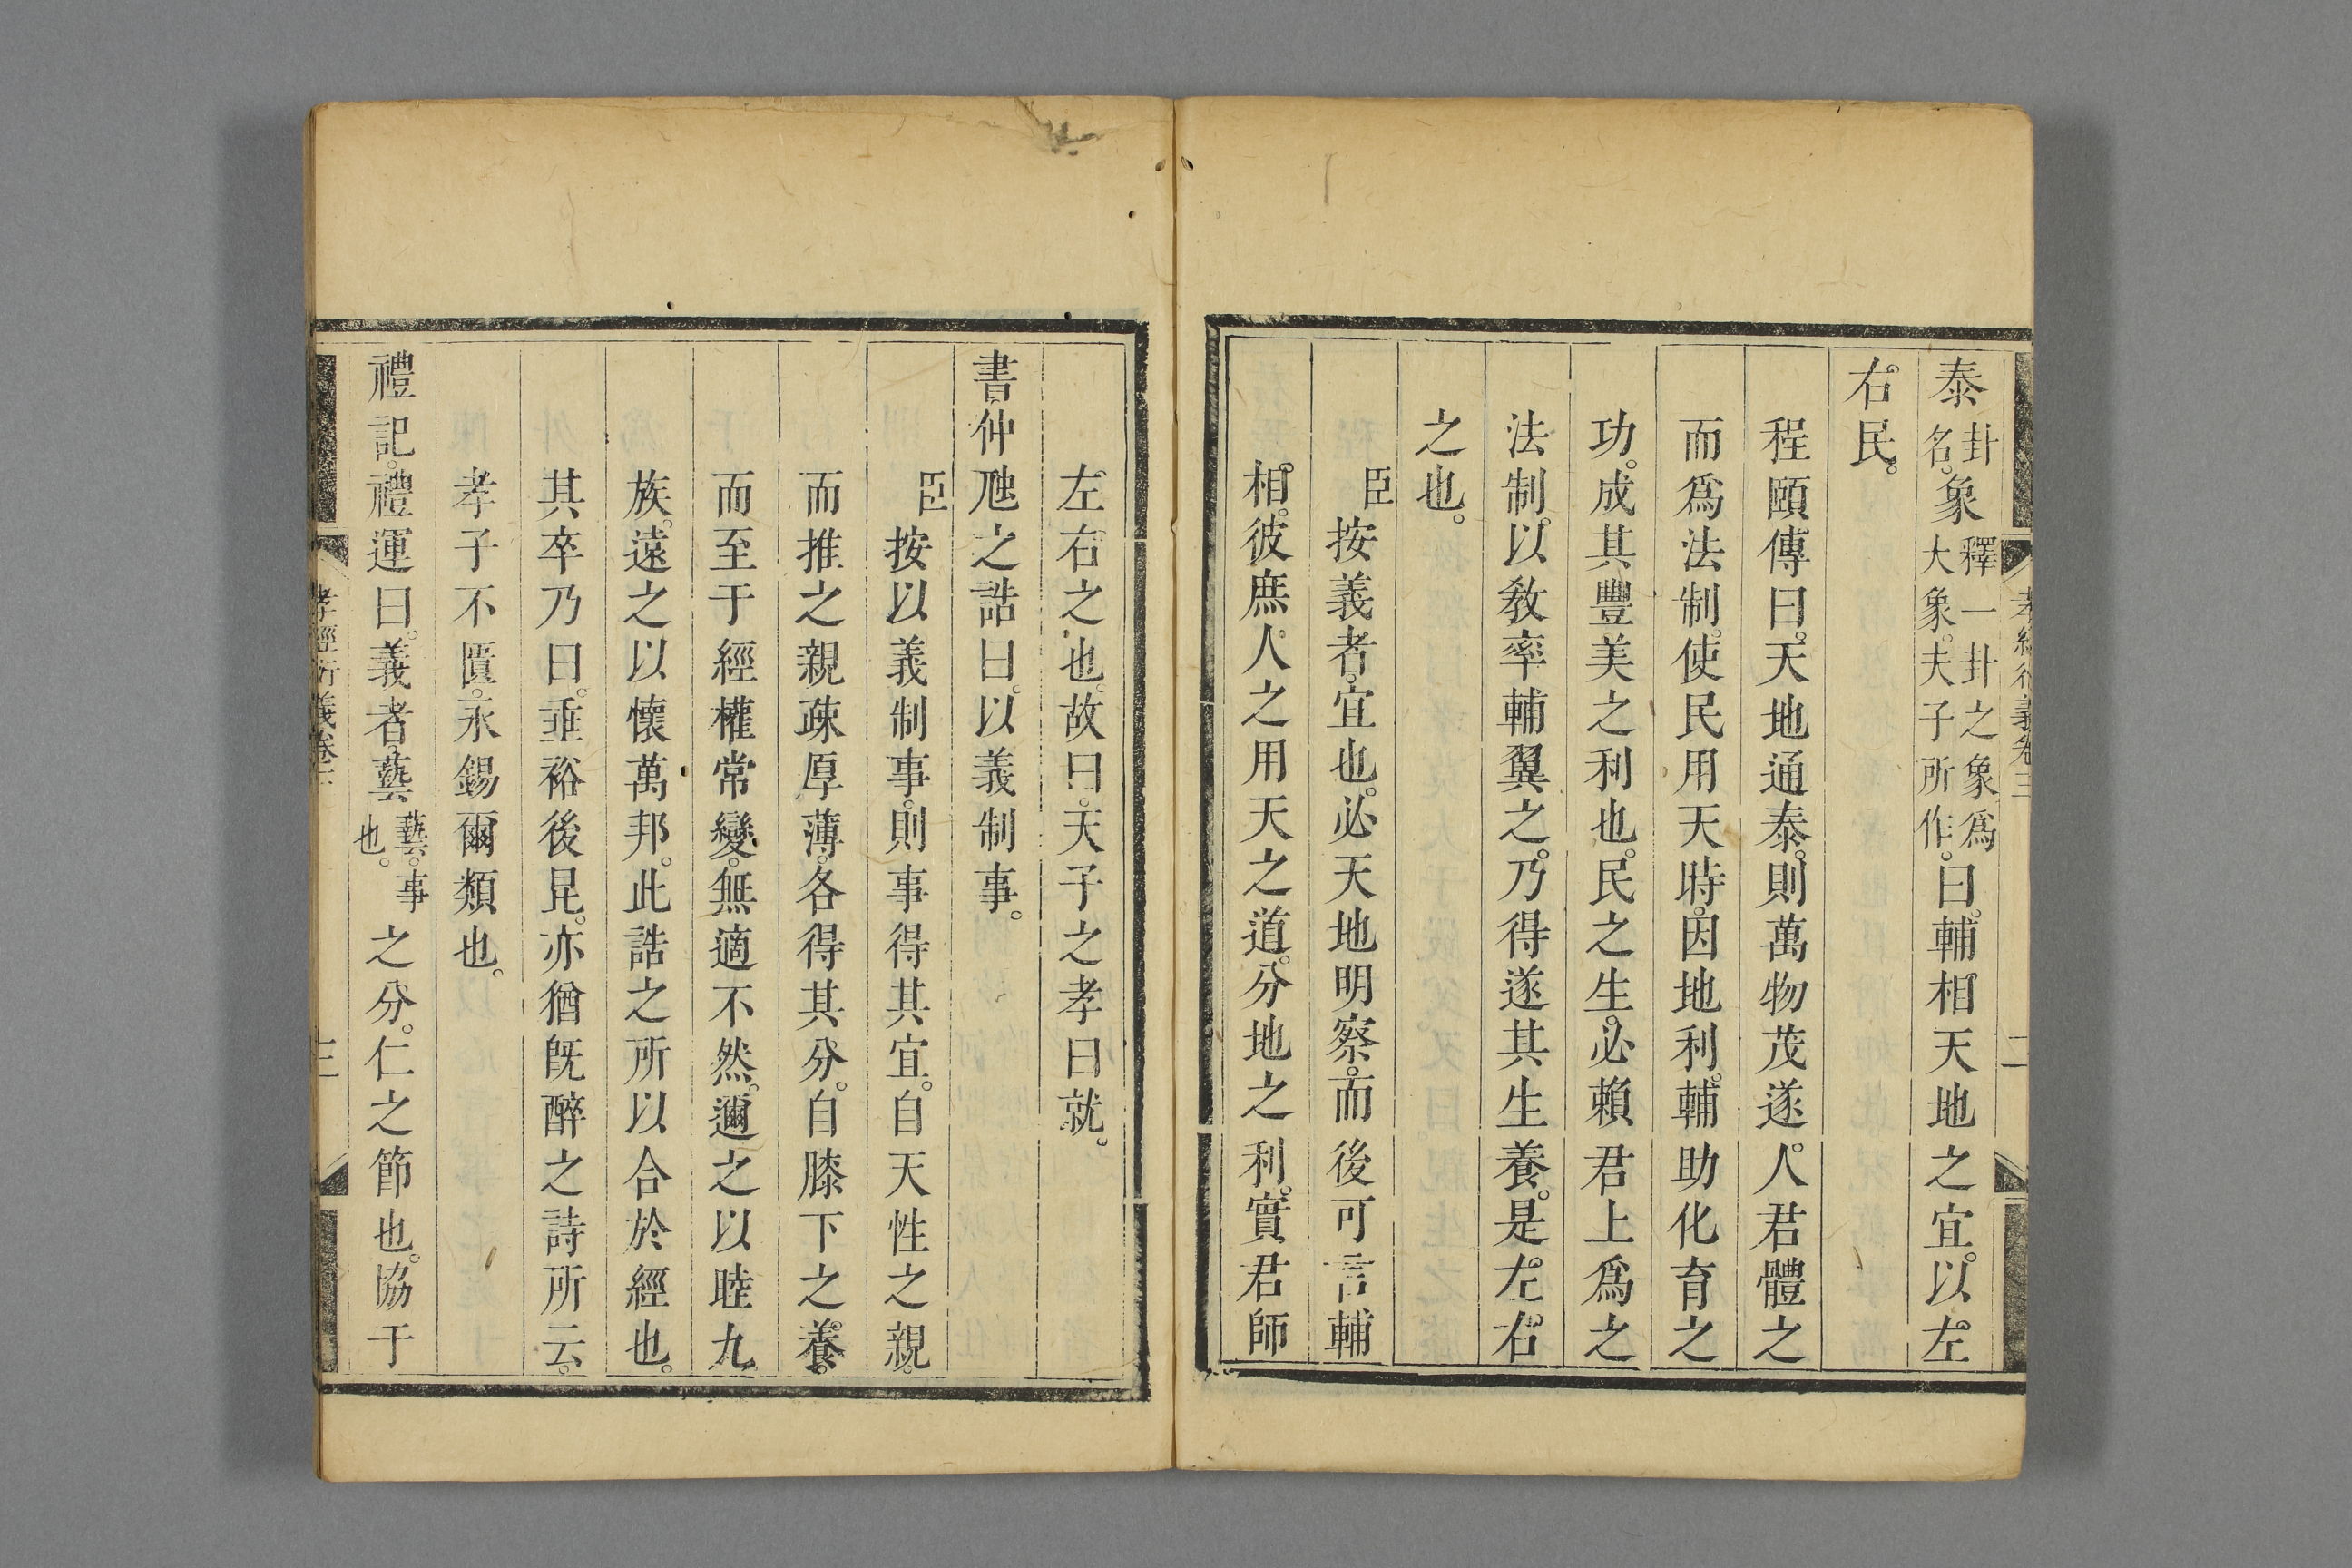 孝經衍義卷三
二
泰卦名。象釋一卦之象爲大象。夫子所作。曰。輔相天地之宜。以左
右民。
程頤傳曰。天地通泰。則萬物茂遂。人君體之
而爲法制。使民用天時。因地利。輔助化育之
功。成其豐美之利也。民之生。必賴君上爲之
法制。以敎率輔翼之。乃得遂其生養。是左右
之也。
臣按義者。宜也。必天地明察。而後可言輔
相。彼庶人之用天之道。分地之利。實君師
左右之也。故曰。天子之孝曰就。
書仲虺之誥曰。以義制事。
臣按以義制事。則事得其宜。自天性之親。
而推之親疎厚薄。各得其分。自膝下之養。
而至于經權常變。無適不然。邇之以睦九
族。遠之以懷萬邦。此誥之所以合於經也。
其卒乃曰。垂裕後昆。亦猶旣醉之詩所云。
孝子不匱。永錫爾類也。
禮記。禮運曰。義者。藝藝。事也。之分。仁之節也。協于
孝經衍義卷三
三